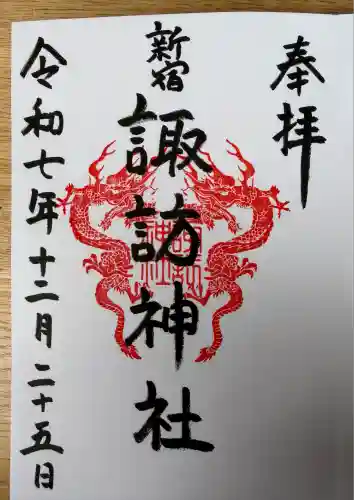 奉拝
新宿
諏訪神社
令和七年十二月二十五日